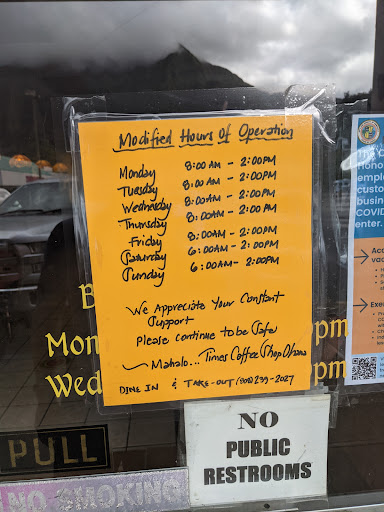 Modified Hours of Operation
Monday 8:00 AM - 2:00PM
Tuesday 8:00 AM - 2:00PM
Wednesday 8:00AM - 2:00 PM
Thursday 8:00AM - 2:00 PM
Friday 8:00 AM - 2:00PM
Saturday 6:00AM - 2:00PM
Sunday 6:00AM - 2:00PM
We Appreciate Your Constant
Support
Please continue to be Safe
Mahalo... Times Coffee Shop Ohana
DINE IN & TAKE-OUT (808) 299-2027
B
Mon pm
Wed pm
PULL
NO SMOKING
NO
PUBLIC
RESTROOMS
Hono
emplo
custo
busin
COVID
enter.